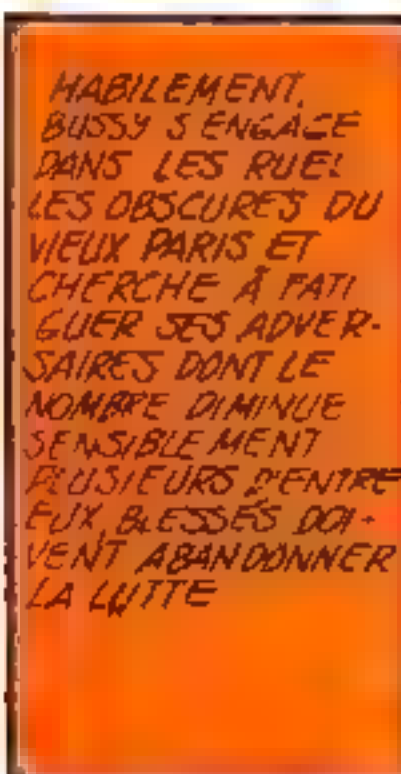 HABILEMENT,
BUSSY S'ENGAGE
DANS LES RUEL
LES OBSCURES DU
VIEUX PARIS ET
CHERCHE À FATI
GUER SES ADVER-
SAIRES DONT LE
NOMBRE DIMINUE
SENSIBLEMENT
PLUSIEURS D'ENTRE
EUX, BLESSÉS DOI-
VENT ABANDONNER
LA LUTTE